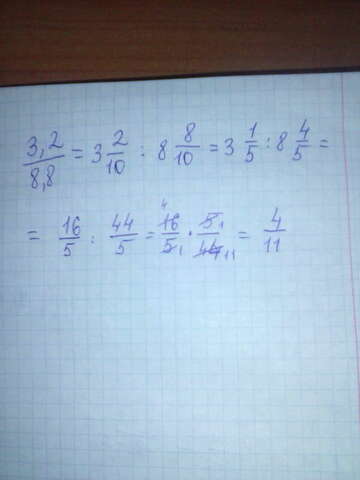 3,2/8,8 = 3 2/10 : 8 8/10 = 3 1/5 : 8 4/5 =
= 16/5 : 44/5 = 4 16/5 1 · 5 1/44 11 = 4/11